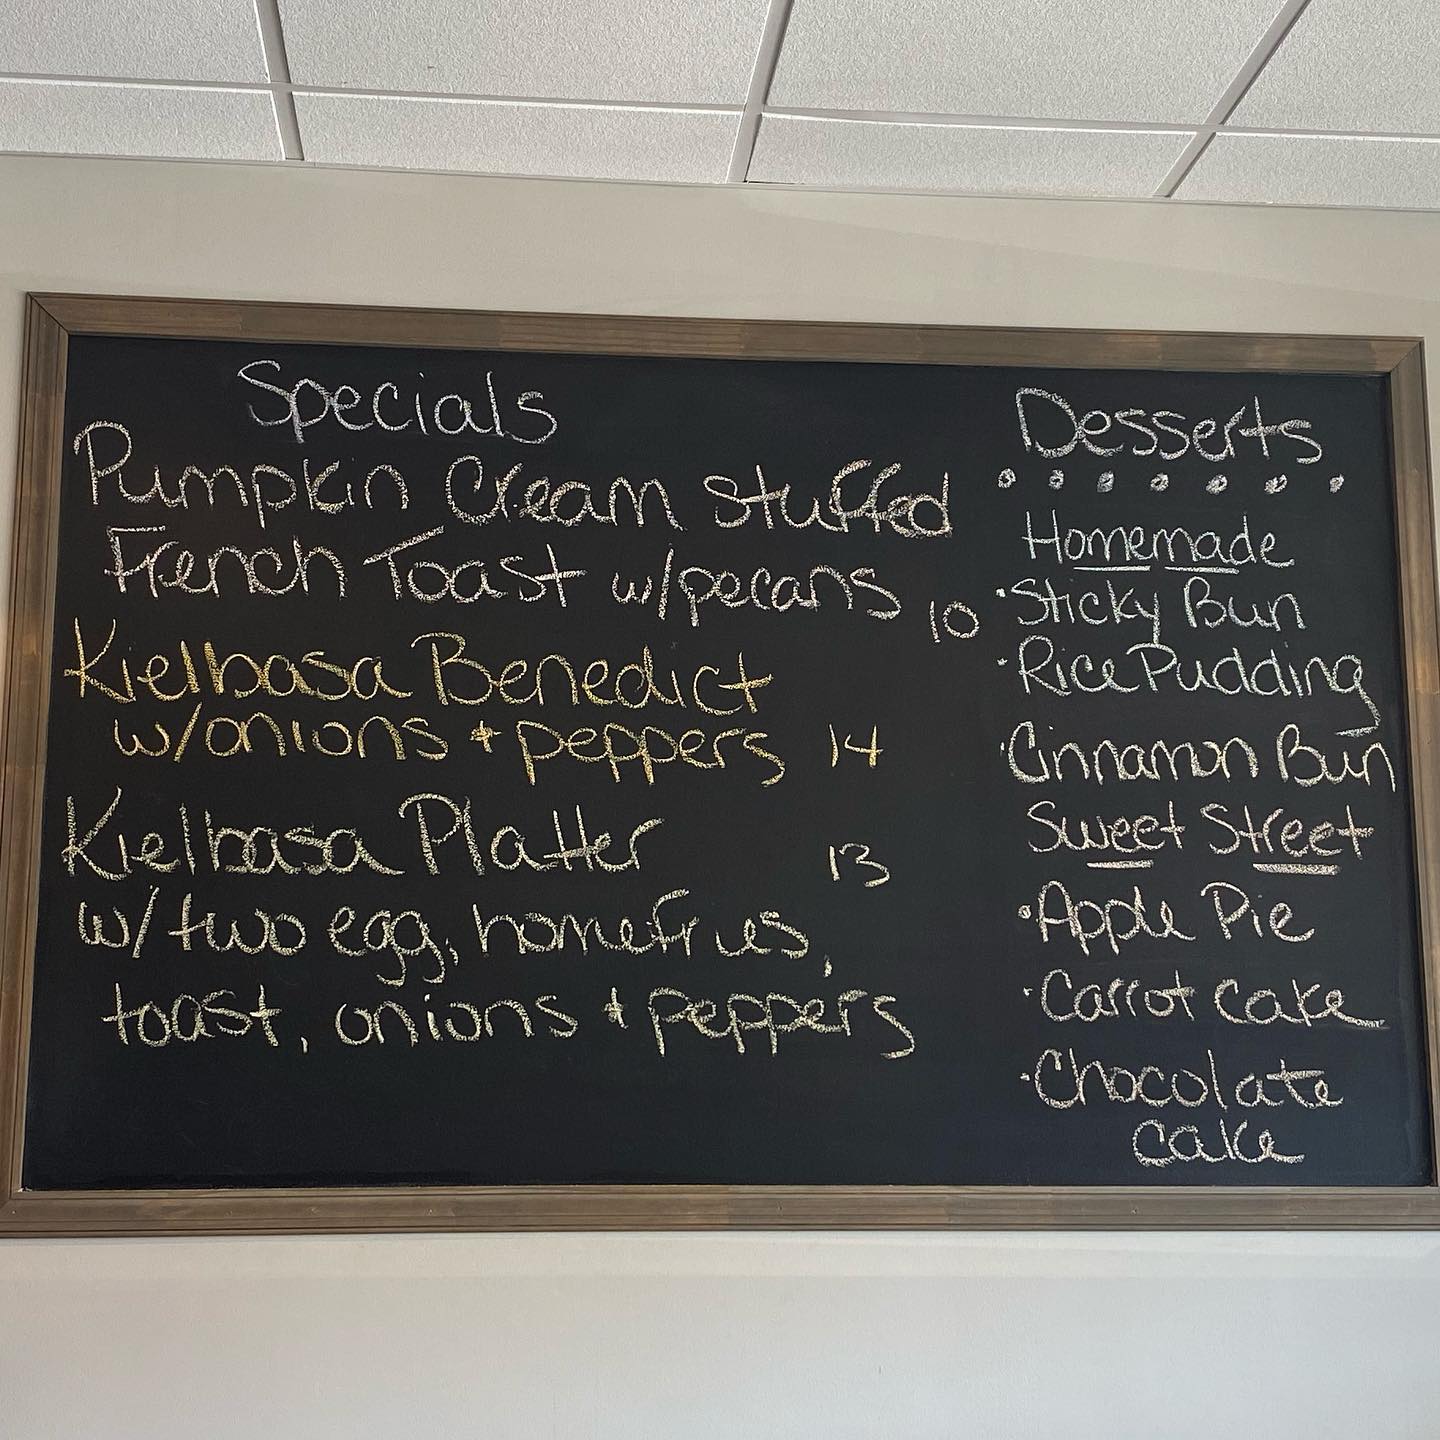 Specials
Pumpkin Cream Stuffed
French Toast w/pecans 10
Kielbasa Benedict
w/onions + peppers 14
Kielbasa Platter 13
w/ two egg, homefries,
toast, onions + peppers
Desserts
Homemade
• Sticky Bun
• Rice Pudding
• Cinnamon Bun
Sweet Street
• Apple Pie
• Carrot Cake
• Chocolate
cake